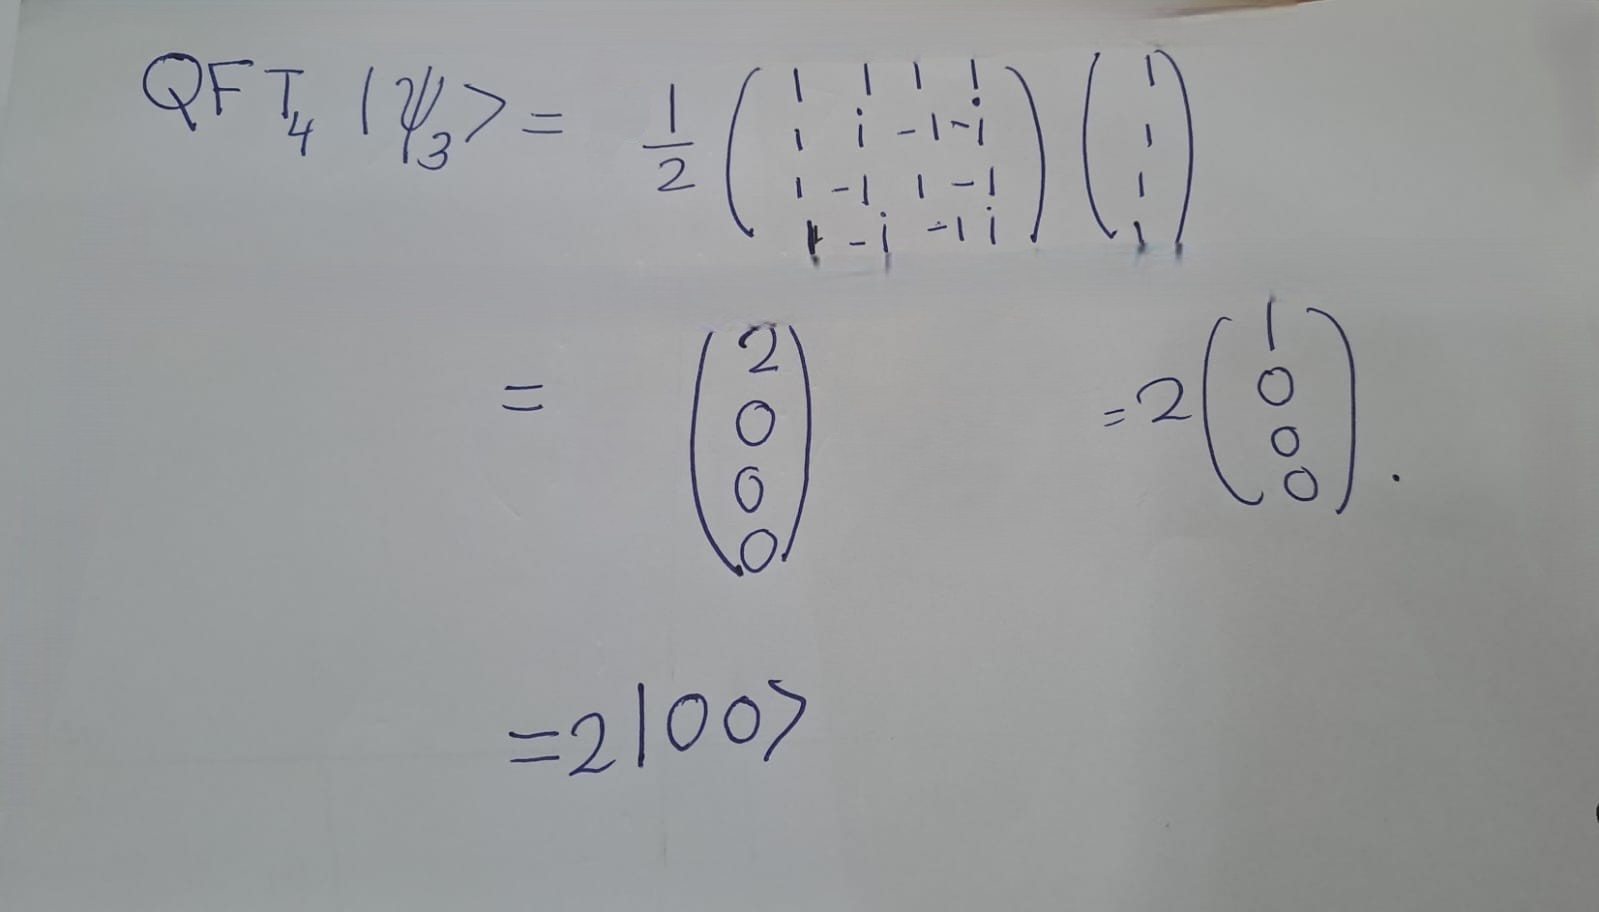 QFT₄ |ψ₃> = 1/2 ( 1 1 1 1 ; 1 i -1 -i ; 1 -1 1 -1 ; 1 -i -1 i ) ( 1 ; 1 ; 1 ; 1 )
= ( 2 ; 0 ; 0 ; 0 ) = 2 ( 1 ; 0 ; 0 ; 0 ) .
= 2|00>